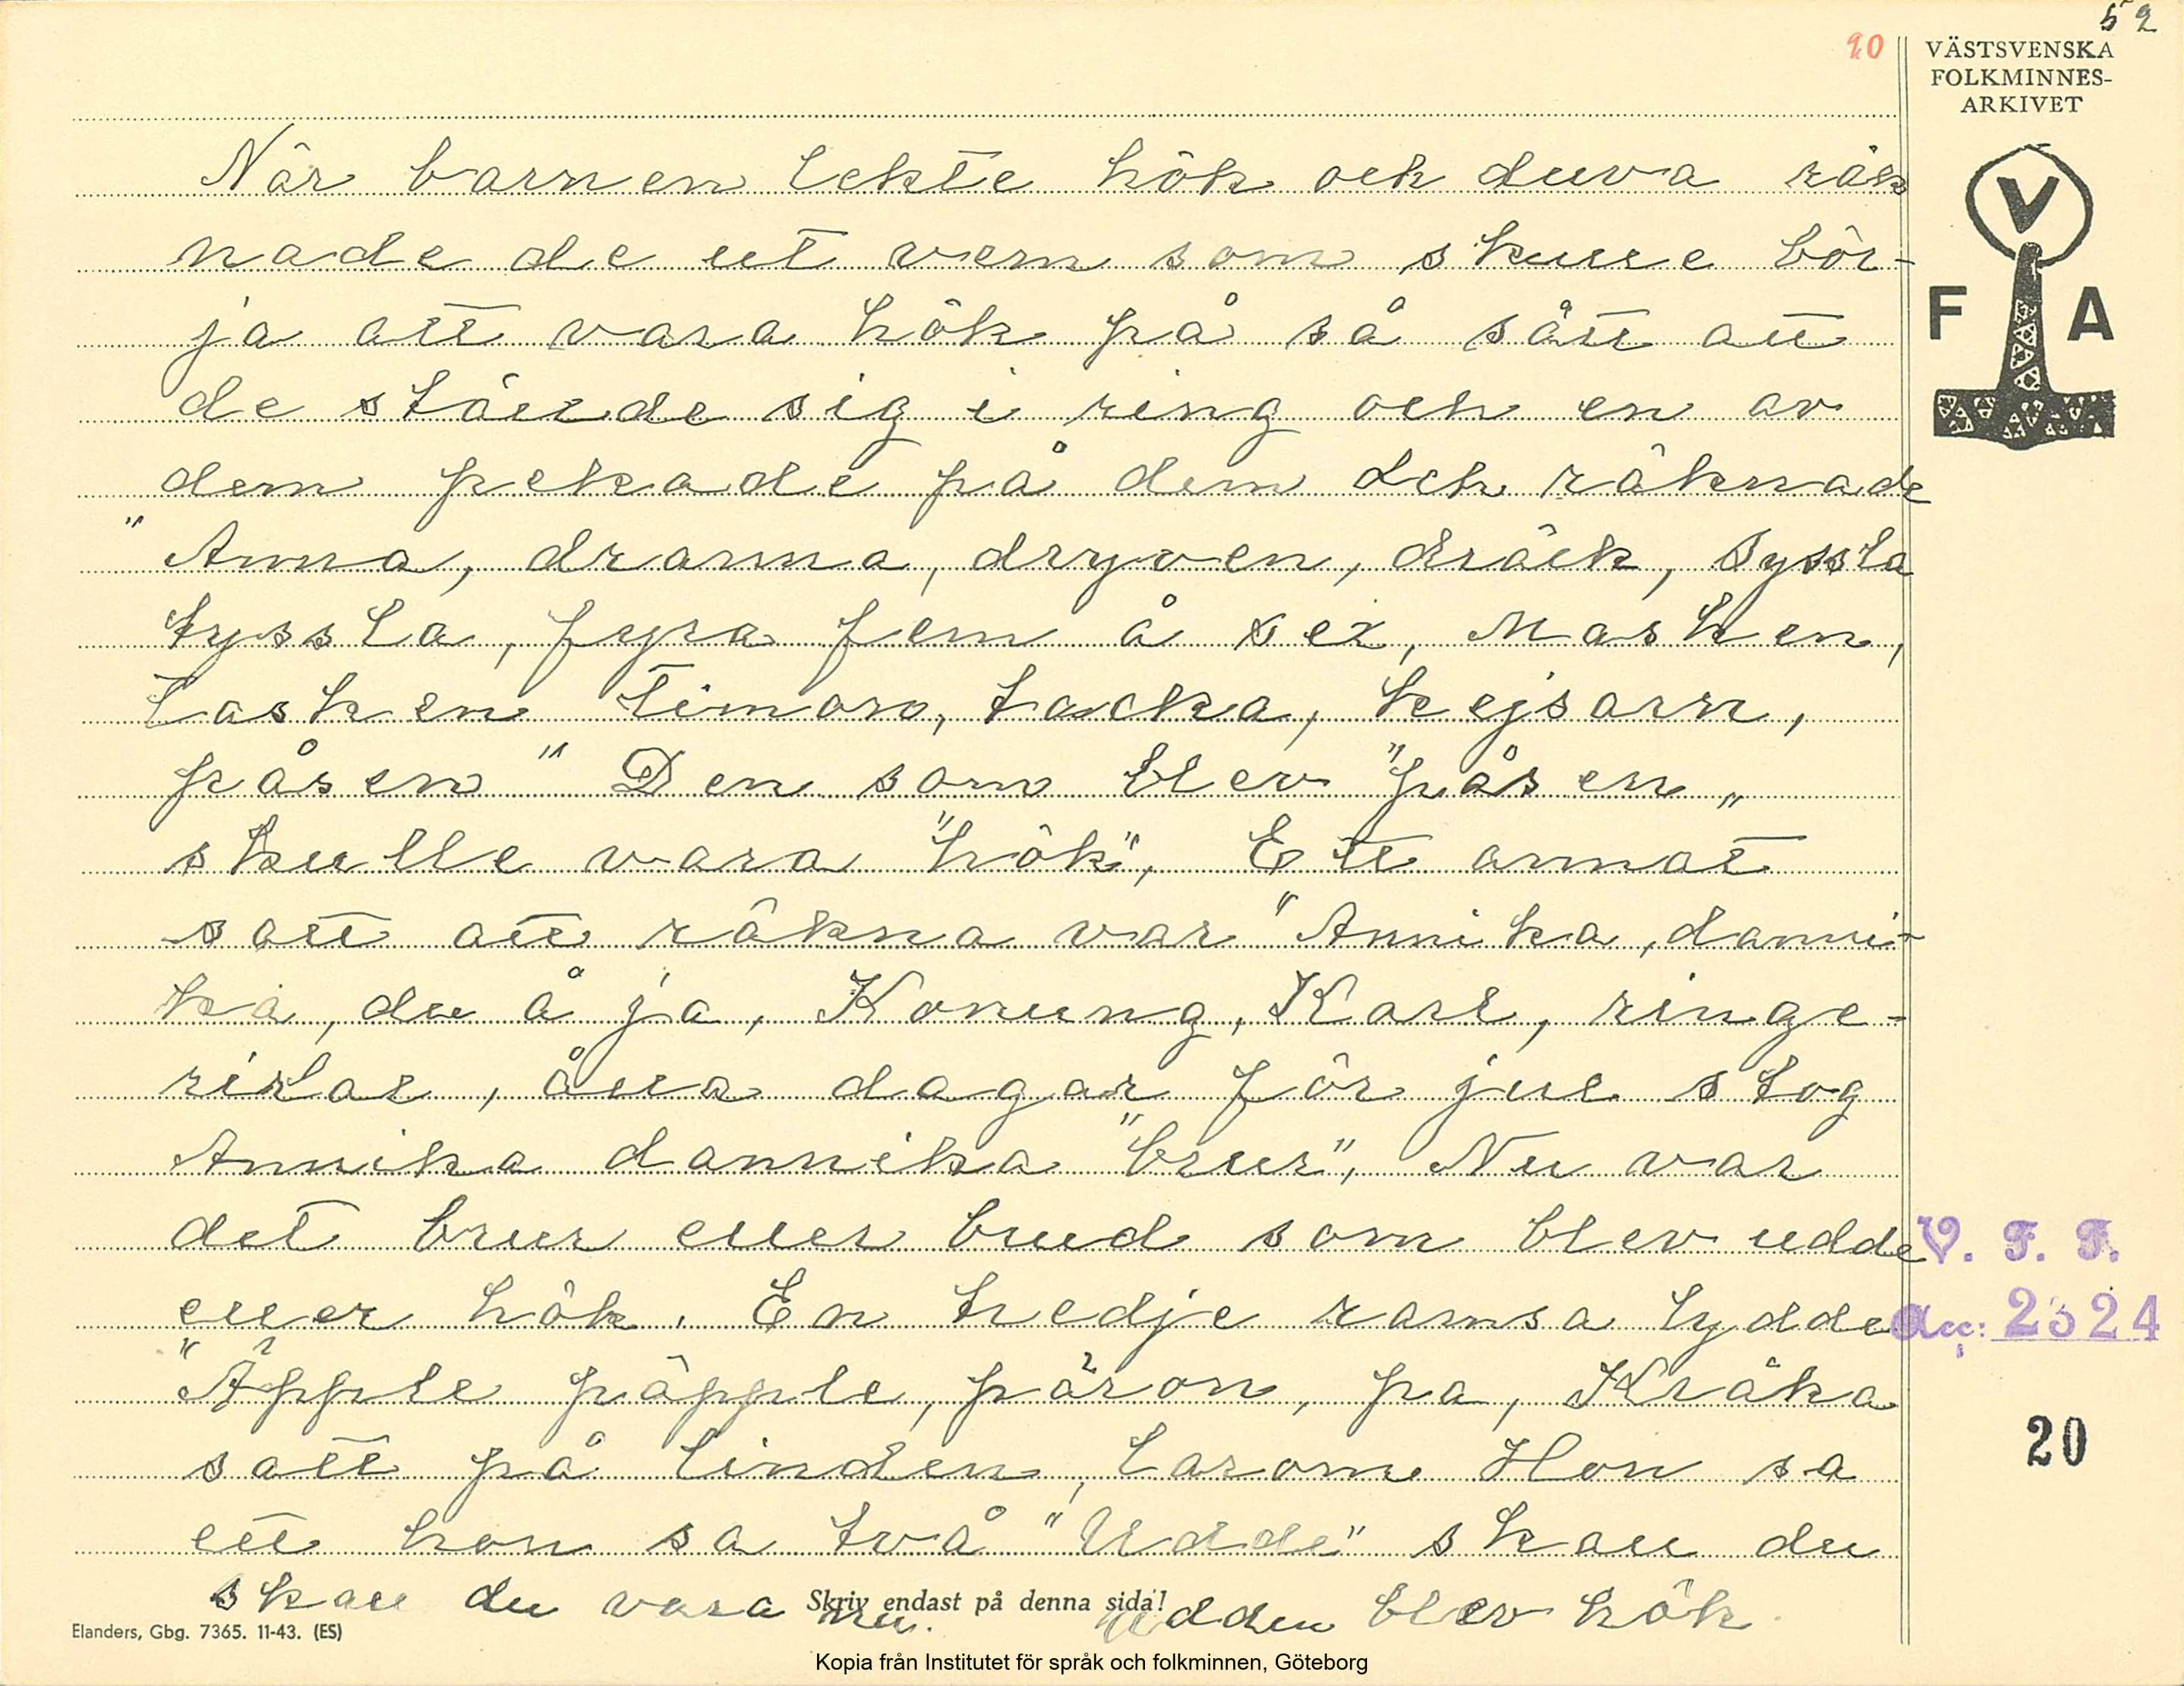 52
20
VÄSTSVENSKA
FOLKMINNES-
ARKIVET
V
F A
När barnen lekte hök och duva räk
nade de ut vem som skulle bör-
ja att vara hök på så sätt att
de stände sig i ring och en av
dem pekade på dem och räknade
"Anna, dranna, dryven, dräck, syssla
tyssla, fyra fem å sex, Masken,
lasken Timoro, tacka, kejsarn,
påsen" Den som blev "påsen"
skulle vara "hök", Ett annat
sätt att räkna var "Annika, danni-
ka, du å ja, Konung, Karl, ringe-
rirlar, ålla dagar för jul stog
Annika dannika "brur", Nu var
det brur eller brud som blev udde
eller hök. En tredje ramsa lydde
"Äpple päpple, päron, pa, Kråka
satt på linden, larom Hon sa
ett hon sa två "Udde" skall du
skall du vara nu. Udden blev hök.
V. F. F.
Acc: 2324
20
Skriv endast på denna sida!
Elanders, Gbg. 7365. 11-43. (ES)
Kopia från Institutet för språk och folkminnen, Göteborg